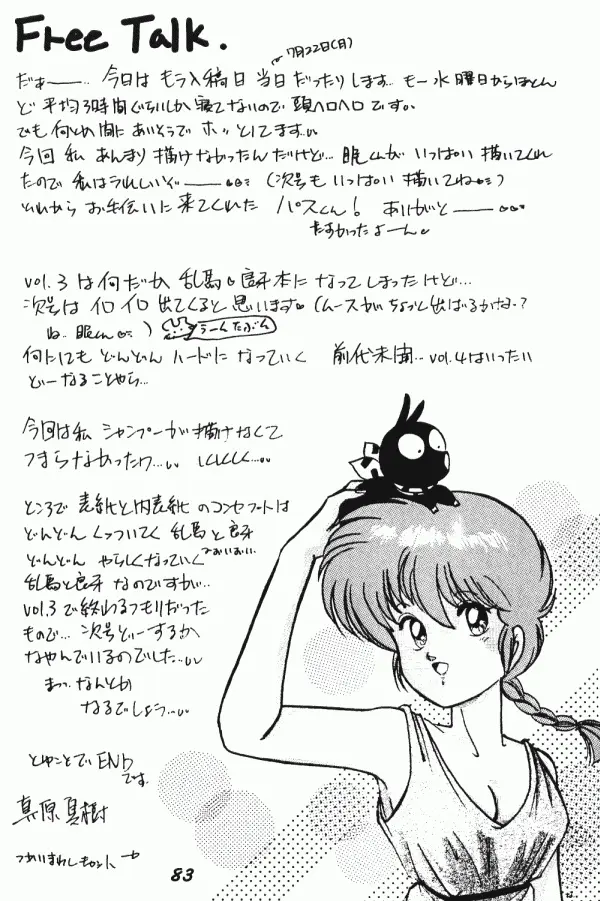 Free Talk.
7月22日(月)
だぁーー… 今日は もう入稿日 当日だったりします… もー水曜日からほとん
ど 平均3時間ぐらいしか寝てないので 頭ヘロヘロです。
でも何とか間にあいそうで ホッとしてます…
今回 私 あんまり描けなかったんだけど… 眠くんが いっぱい描いてくれ
たので 私はうれしいぞーー (次号も いっぱい 描いてね)
それから お手伝いに 来てくれた パスくん! ありがとーー
たすかったよーん
vol.3 は何だか 乱馬 良牙本に なって しまったけど…
次号は イロイロ 出てくると 思います。(ムースがちょっと出ばるかな?
ね、眠くん )
うーんたぶん
何にしても どんどん ハードに なっていく 前代未聞… vol.4はいったい
どーなることやら…
今回は私 シャンプーが描けなくて
つまらなかったワ… しくしく…
ところで 表紙と内表紙 のコンセプトは
どんどん くっついてく 乱馬と良牙
どんどん やらしくなっていく
おいおい
乱馬と良牙 なのですが…
vol.3で終わるつもりだった
もので… 次号どーするか
なやんでいるのでした…
まっ、なんとか
なるでしょう…
とゆことで END
です。
真原真樹
83